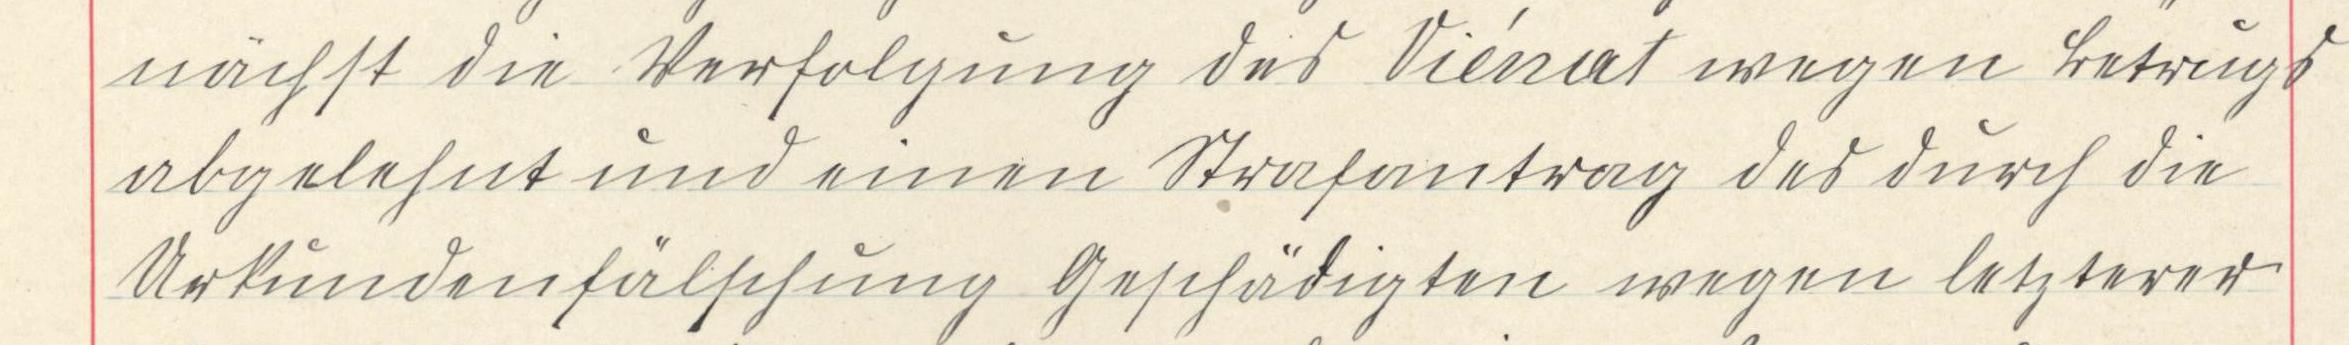 nächst die Verfolgung des Viénat wegen Betrugs
abgelehnt und einen Strafantrag des durch die
Urkundenfälschung Geschädigten wegen letzterer